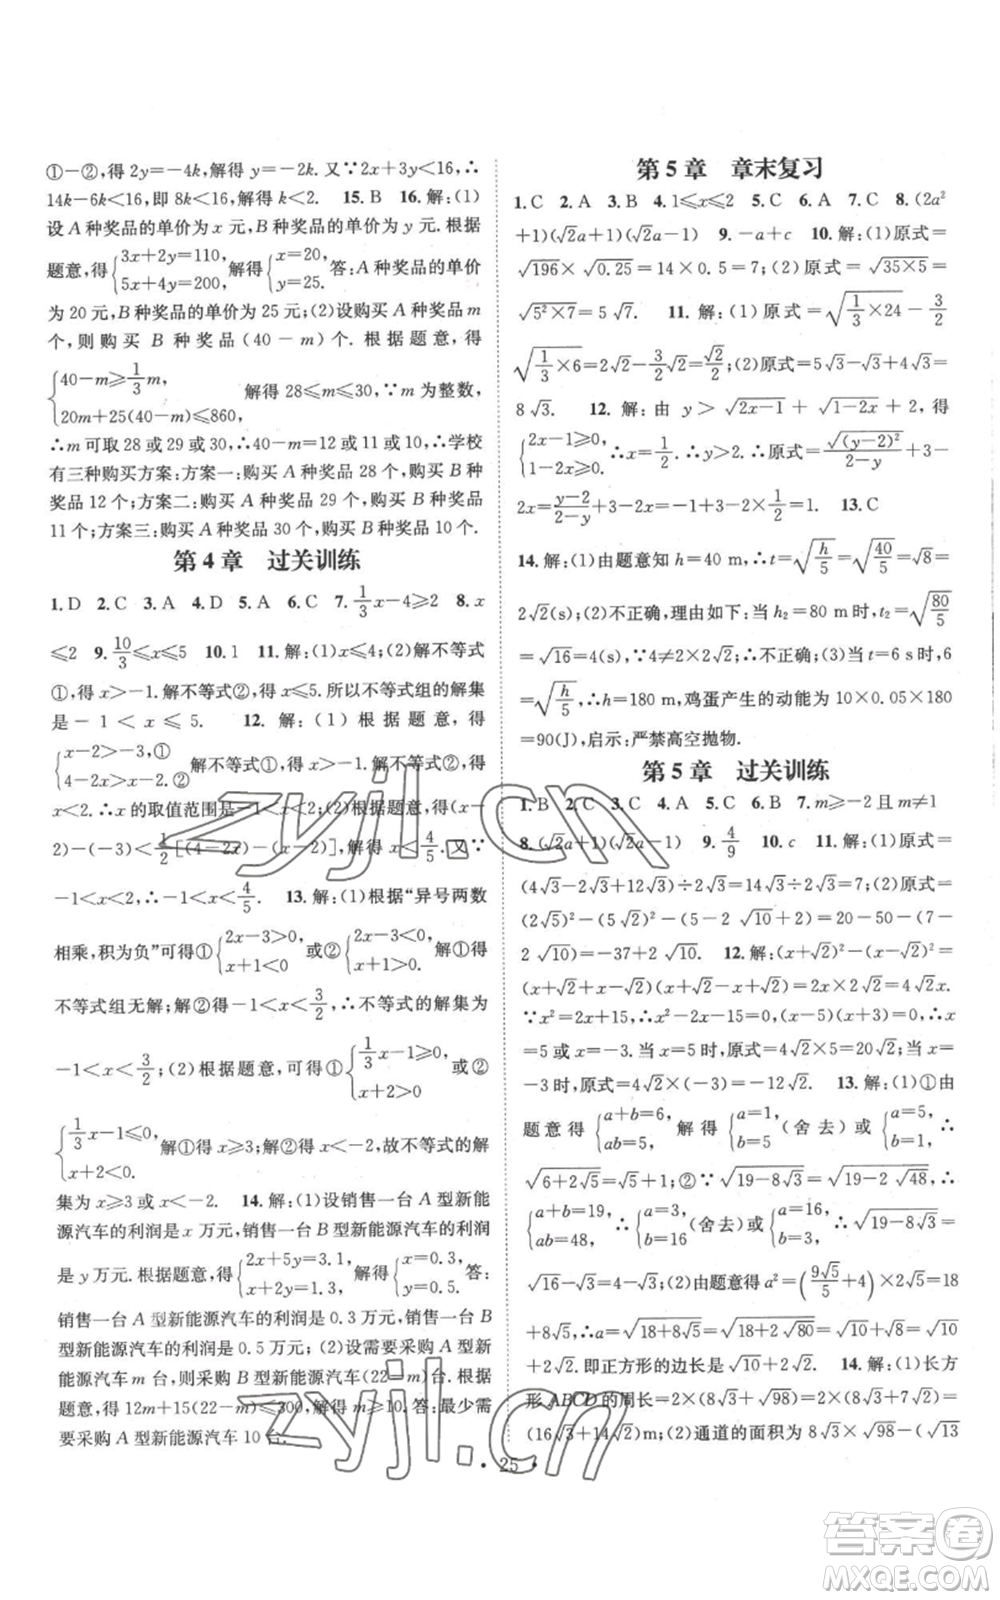 ①-②,得 2y=-4k,解得 y=-2k. 又∵2x+3y<16,∴
14k-6k<16,即 8k<16,解得 k<2. 15. B 16. 解:(1)
设 A 种奖品的单价为 x 元,B 种奖品的单价为 y 元. 根据
题意,得{3x+2y=110, 5x+4y=200, 解得{x=20, y=25. 答:A 种奖品的单价
为 20 元,B 种奖品的单价为 25 元;(2)设购买 A 种奖品 m
个,则购买 B 种奖品(40-m)个. 根据题意,得
{40-m≥1/3m, 20m+25(40-m)≤860, 解得 28≤m≤30,∵m 为整数,
∴m 可取 28 或 29 或 30,∴40-m=12 或 11 或 10,∴学校
有三种购买方案:方案一:购买 A 种奖品 28 个,购买 B 种
奖品 12 个;方案二:购买 A 种奖品 29 个,购买 B 种奖品
11 个;方案三:购买 A 种奖品 30 个,购买 B 种奖品 10 个.
第 4 章 过关训练
1. D 2. C 3. A 4. D 5. A 6. C 7. 1/3x-4≥2 8. x
≤2 9. 10/3≤x≤5 10. 1 11. 解:(1)x≤4;(2)解不等式
①,得 x>-1. 解不等式②,得 x≤5. 所以不等式组的解集
是 -1<x≤5. 12. 解:(1)根据题意,得
{x-2>-3,① 4-2x>0.② 解不等式①,得 x>-1. 解不等式②,得
x<2. ∴x 的取值范围是-1<x<2;(2)根据题意,得(x-
2)-(-3)<1/2[(4-2x)-(x-2)],解得 x<4/5. 又∵
-1<x<2,∴-1<x<4/5. 13. 解:(1)根据“异号两数
相乘,积为负”可得①{2x-3>0, x+1<0 或②{2x-3<0, x+1>0. 解①得
不等式组无解;解②得-1<x<3/2,∴不等式的解集为
-1<x<3/2;(2)根据题意,可得①{1/3x-1≥0, x+2>0 或②
{1/3x-1≤0, x+2<0. 解①得 x≥3;解②得 x<-2,故不等式的解
集为 x≥3 或 x<-2. 14. 解:(1)设销售一台 A 型新能
源汽车的利润是 x 万元,销售一台 B 型新能源汽车的利润
是 y 万元. 根据题意,得{2x+5y=3.1, x+2y=1.3, 解得{x=0.3, y=0.5. 答:
销售一台 A 型新能源汽车的利润是 0.3 万元,销售一台 B
型新能源汽车的利润是 0.5 万元;(2)设需要采购 A 型新
能源汽车 m 台,则采购 B 型新能源汽车(22-m)台. 根据
题意,得 12m+15(22-m)≤300,解得 m≥10. 答:最少需
要采购 A 型新能源汽车 10 台.
第 5 章 章末复习
1. C 2. A 3. B 4. 1≤x≤2 5. C 6. A 7. C 8. (2a²
+1)(√2a+1)(√2a-1) 9. -a+c 10. 解:(1)原式=
√196×√0.25=14×0.5=7;(2)原式=√(35×5)=
√(5²×7)=5√7. 11. 解:(1)原式=√(1/3×24)-3/2
√(1/3×6)=2√2-3/2√2=√2/2;(2)原式=5√3-√3+4√3=
8√3. 12. 解:由 y>√(2x-1)+√(1-2x)+2,得
{2x-1≥0, 1-2x≥0. ∴x=1/2. ∴y>2,∴原式=√(y-2)²/(2-y)+3-
2x=(y-2)/(2-y)+3-2x=-1+3-2×1/2=1. 13. C
14. 解:(1)由题意知 h=40 m,∴t=√(h/5)=√(40/5)=√8=
2√2(s);(2)不正确,理由如下:当 h₂=80 m 时,t₂=√(80/5)
=√16=4(s),∵4≠2×2√2,∴不正确;(3)当 t=6 s 时,6
=√(h/5),∴h=180 m,鸡蛋产生的动能为 10×0.05×180
=90(J),启示:严禁高空抛物.
第 5 章 过关训练
1. B 2. C 3. C 4. A 5. C 6. B 7. m≥-2 且 m≠1
8. (√2a+1)(√2a-1) 9. 4/9 10. c 11. 解:(1)原式=
(4√3-2√3+12√3)÷2√3=14√3÷2√3=7;(2)原式=
(2√5)²-(√2)²-(5√2-2√10+2)=20-2-(7-
2√10)=-37+2√10 12. 解:(x+√2)²-(x-√2)²=
(x+√2+x-√2)(x+√2-x+√2)=2x×2√2=4√2x.
∵x²=2x+15,∴x²-2x-15=0,(x-5)(x+3)=0,∴x
=5 或 x=-3. 当 x=5 时,原式=4√2×5=20√2;当 x=
-3 时,原式=4√2×(-3)=-12√2. 13. 解:(1)①由
题意得{a+b=6, ab=5, 解得{a=1, b=5 (舍去)或{a=5, b=1, ∴
√(6+2√5)=√5+1;②∵√(19-8√3)=√(19-2√48),∴
{a+b=19, ab=48, ∴{a=3, b=16 (舍去)或{a=16, b=3, ∴√(19-8√3)=
√16-√3=4-√3;(2)由题意得 a²=(9√5/5+4)×2√5=18
+8√5,∴a=√(18+8√5)=√(18+2√80)=√10+√8=√10
+2√2. 即正方形的边长是√10+2√2. 14. 解:(1)长方
形 ABCD 的周长=2×(8√3+√98)=2×(8√3+7√2)=
(16√3+14√2)m;(2)通道的面积为 8√3×√98-(√13
• 25 •
zyjl.cn
zyjl.cn
答案圈
MXQE.COM